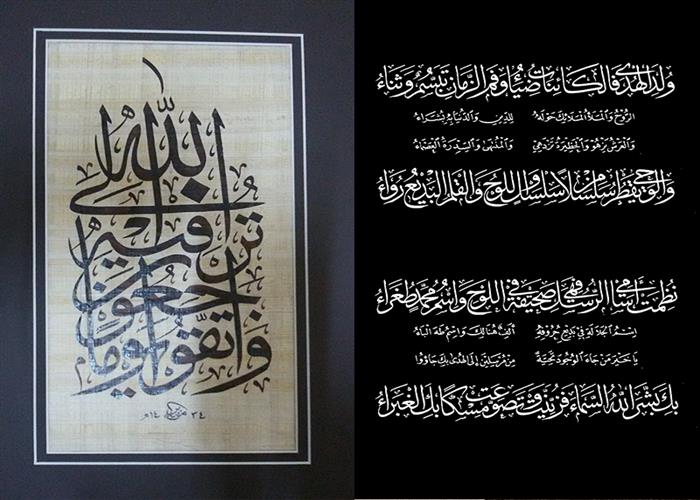 واتقوا يوما ترجعون فيه إلى الله
ولد الهدى فالكائنات ضياء وفم الزمان تبسم وثناء
الروح والملأ الملائك حوله للدين والدنيا به بشراء
والعرش يزهو والحظيرة تزدهي والمنتهى والسدرة العصماء
والوحي يقطر سلسلا من سلسل واللوح والقلم البديع رواء
نظمت أسامي الرسل فهي صحيفة في اللوح واسم محمد طغراء
اسم الجلالة في بديع حروفه ألف هنالك واسم طه الباء
يا خير من جاء الوجود تحية من مرسلين إلى الهدى بك جاؤوا
بك بشر الله السماء فزينت وتضوعت مسكا بك الغبراء